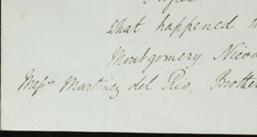 that happened
Montgomery, Nicod
Messrs Martinez del Rio, Brothe